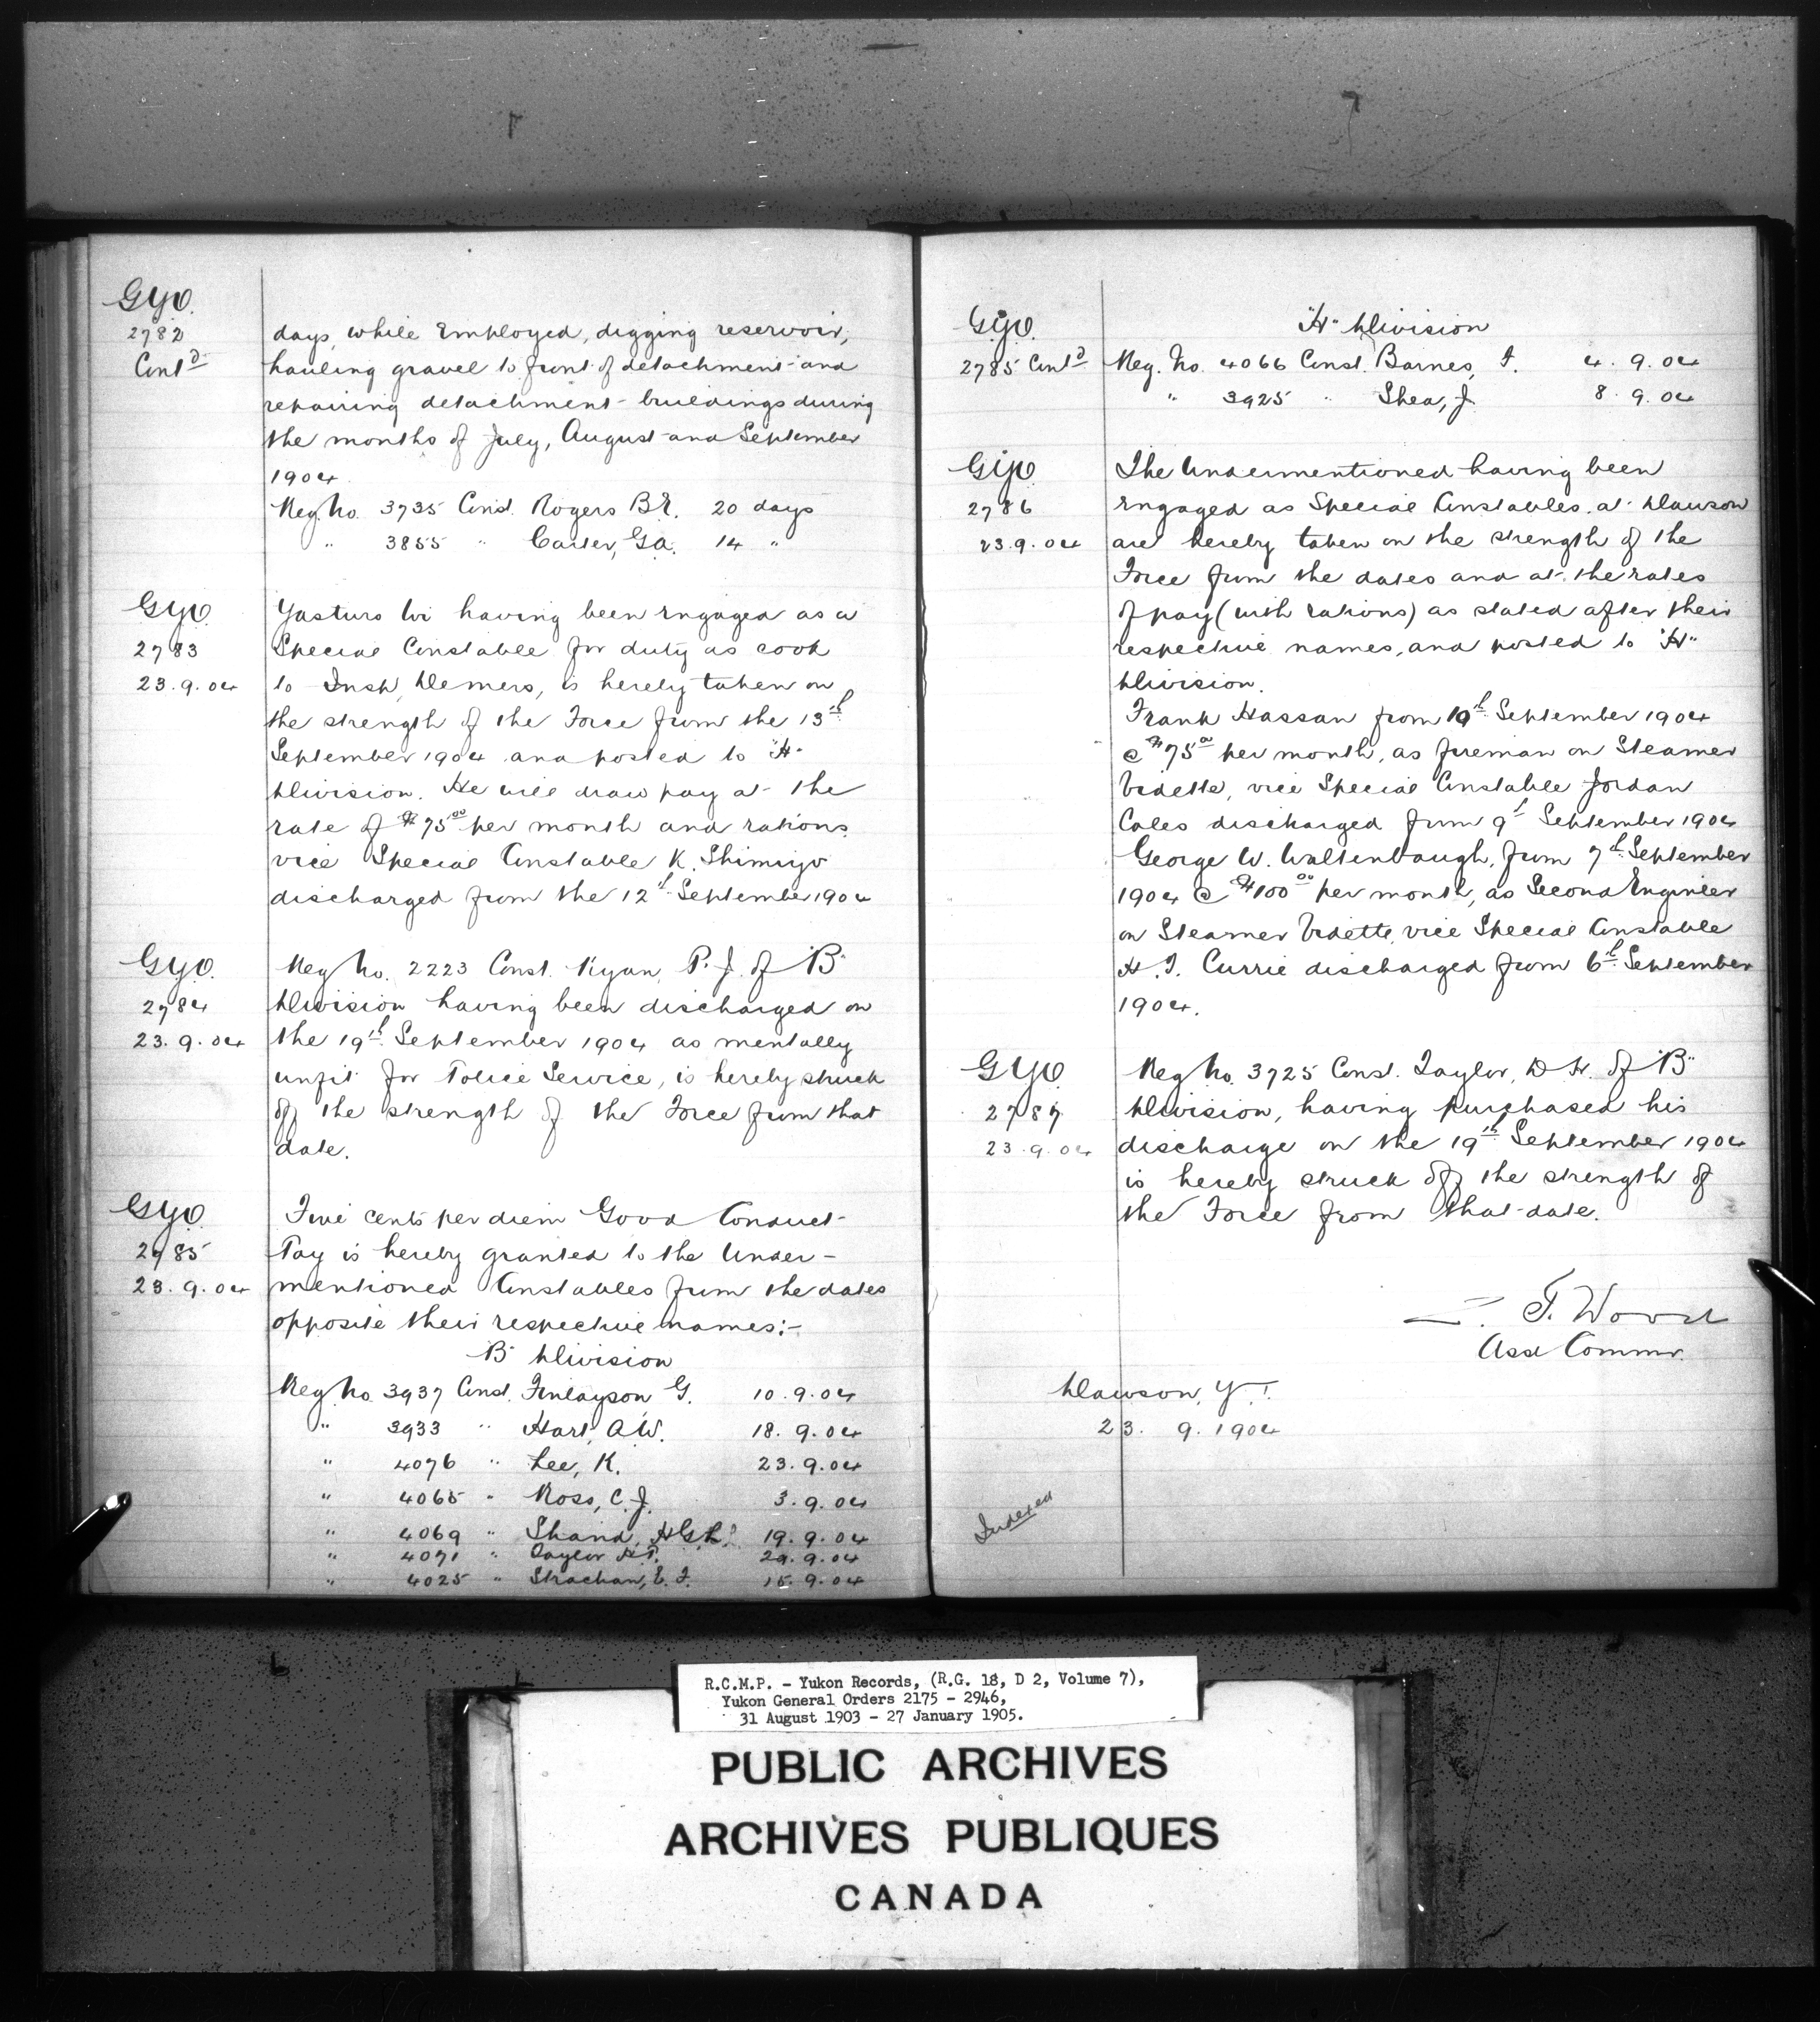 G.Y.O.
2782
Cont'd
days, while Employed, digging reservoir,
hauling gravel to front of detachment and
repairing detachment buildings during
the months of July, August and September
1904.
Reg. No. 3735 Const. Rogers B.R. 20 days
" 3855 " Carter, G.A. 14 "
G.Y.O.
2783
23.9.04
having been engaged as a
Special Constable for duty as cook
to Insp. Demers, is hereby taken on
the strength of the Force from the 13th
September 1904 and posted to "H"
Division. He will draw pay at the
rate of $75.00 per month and rations
vice Special Constable K. Shimizo
discharged from the 12th September 1904
G.Y.O.
2784
23.9.04
Reg. No. 2223 Const. Ryan, P.J. of "B"
Division having been discharged on
the 19th September 1904 as mentally
unfit for Police Service, is hereby struck
off the strength of the Force from that
date.
G.Y.O.
2785
23.9.04
Five cents per diem Good Conduct
Pay is hereby granted to the Under-
mentioned Constables from the dates
opposite their respective names:-
"B" Division
Reg. No. 3937 Const. Finlayson G. 10.9.04
" 3933 " Hart, A.W. 18.9.04
" 4076 " Lee, K. 23.9.04
" 4065 " Ross, C.J. 3.9.04
" 4069 " Shand, 19.9.04
" 4071 " Taylor H.P. 9.04
" 4025 " Strachan, E.F. 15.9.04
G.Y.O.
2785 Cont'd
"H" Division
Reg. No. 4066 Const. Barnes, F. 4.9.04
" 3925 " Shea, J. 8.9.04
G.Y.O.
2786
23.9.04
The Undermentioned having been
engaged as Special Constables at Dawson
are hereby taken on the strength of the
Force from the dates and at the rates
of pay (with rations) as stated after their
respective names, and posted to "H"
Division.
Frank Hassan from 19th September 1904
@ $75.00 per month, as fireman on Steamer
Vidette, vice Special Constable Jordan
Coles discharged from 9th September 1904
George W. Waltenbaugh, from 7th September
1904 @ $100.00 per month, as Second Engineer
on Steamer Vidette, vice Special Constable
H.F. Currie discharged from 6th September
1904.
G.Y.O.
2787
23.9.04
Reg. No. 3725 Const. Taylor, D.H. of "B"
Division, having purchased his
discharge on the 19th September 1904
is hereby struck off the strength of
the Force from that date.
Z. T. Wood
Asst Commr.
Dawson, Y.T.
23. 9. 1904
Indexed
R.C.M.P. - Yukon Records, (R.G. 18, D 2, Volume 7),
Yukon General Orders 2175 - 2946,
31 August 1903 - 27 January 1905.
PUBLIC ARCHIVES
ARCHIVES PUBLIQUES
CANADA